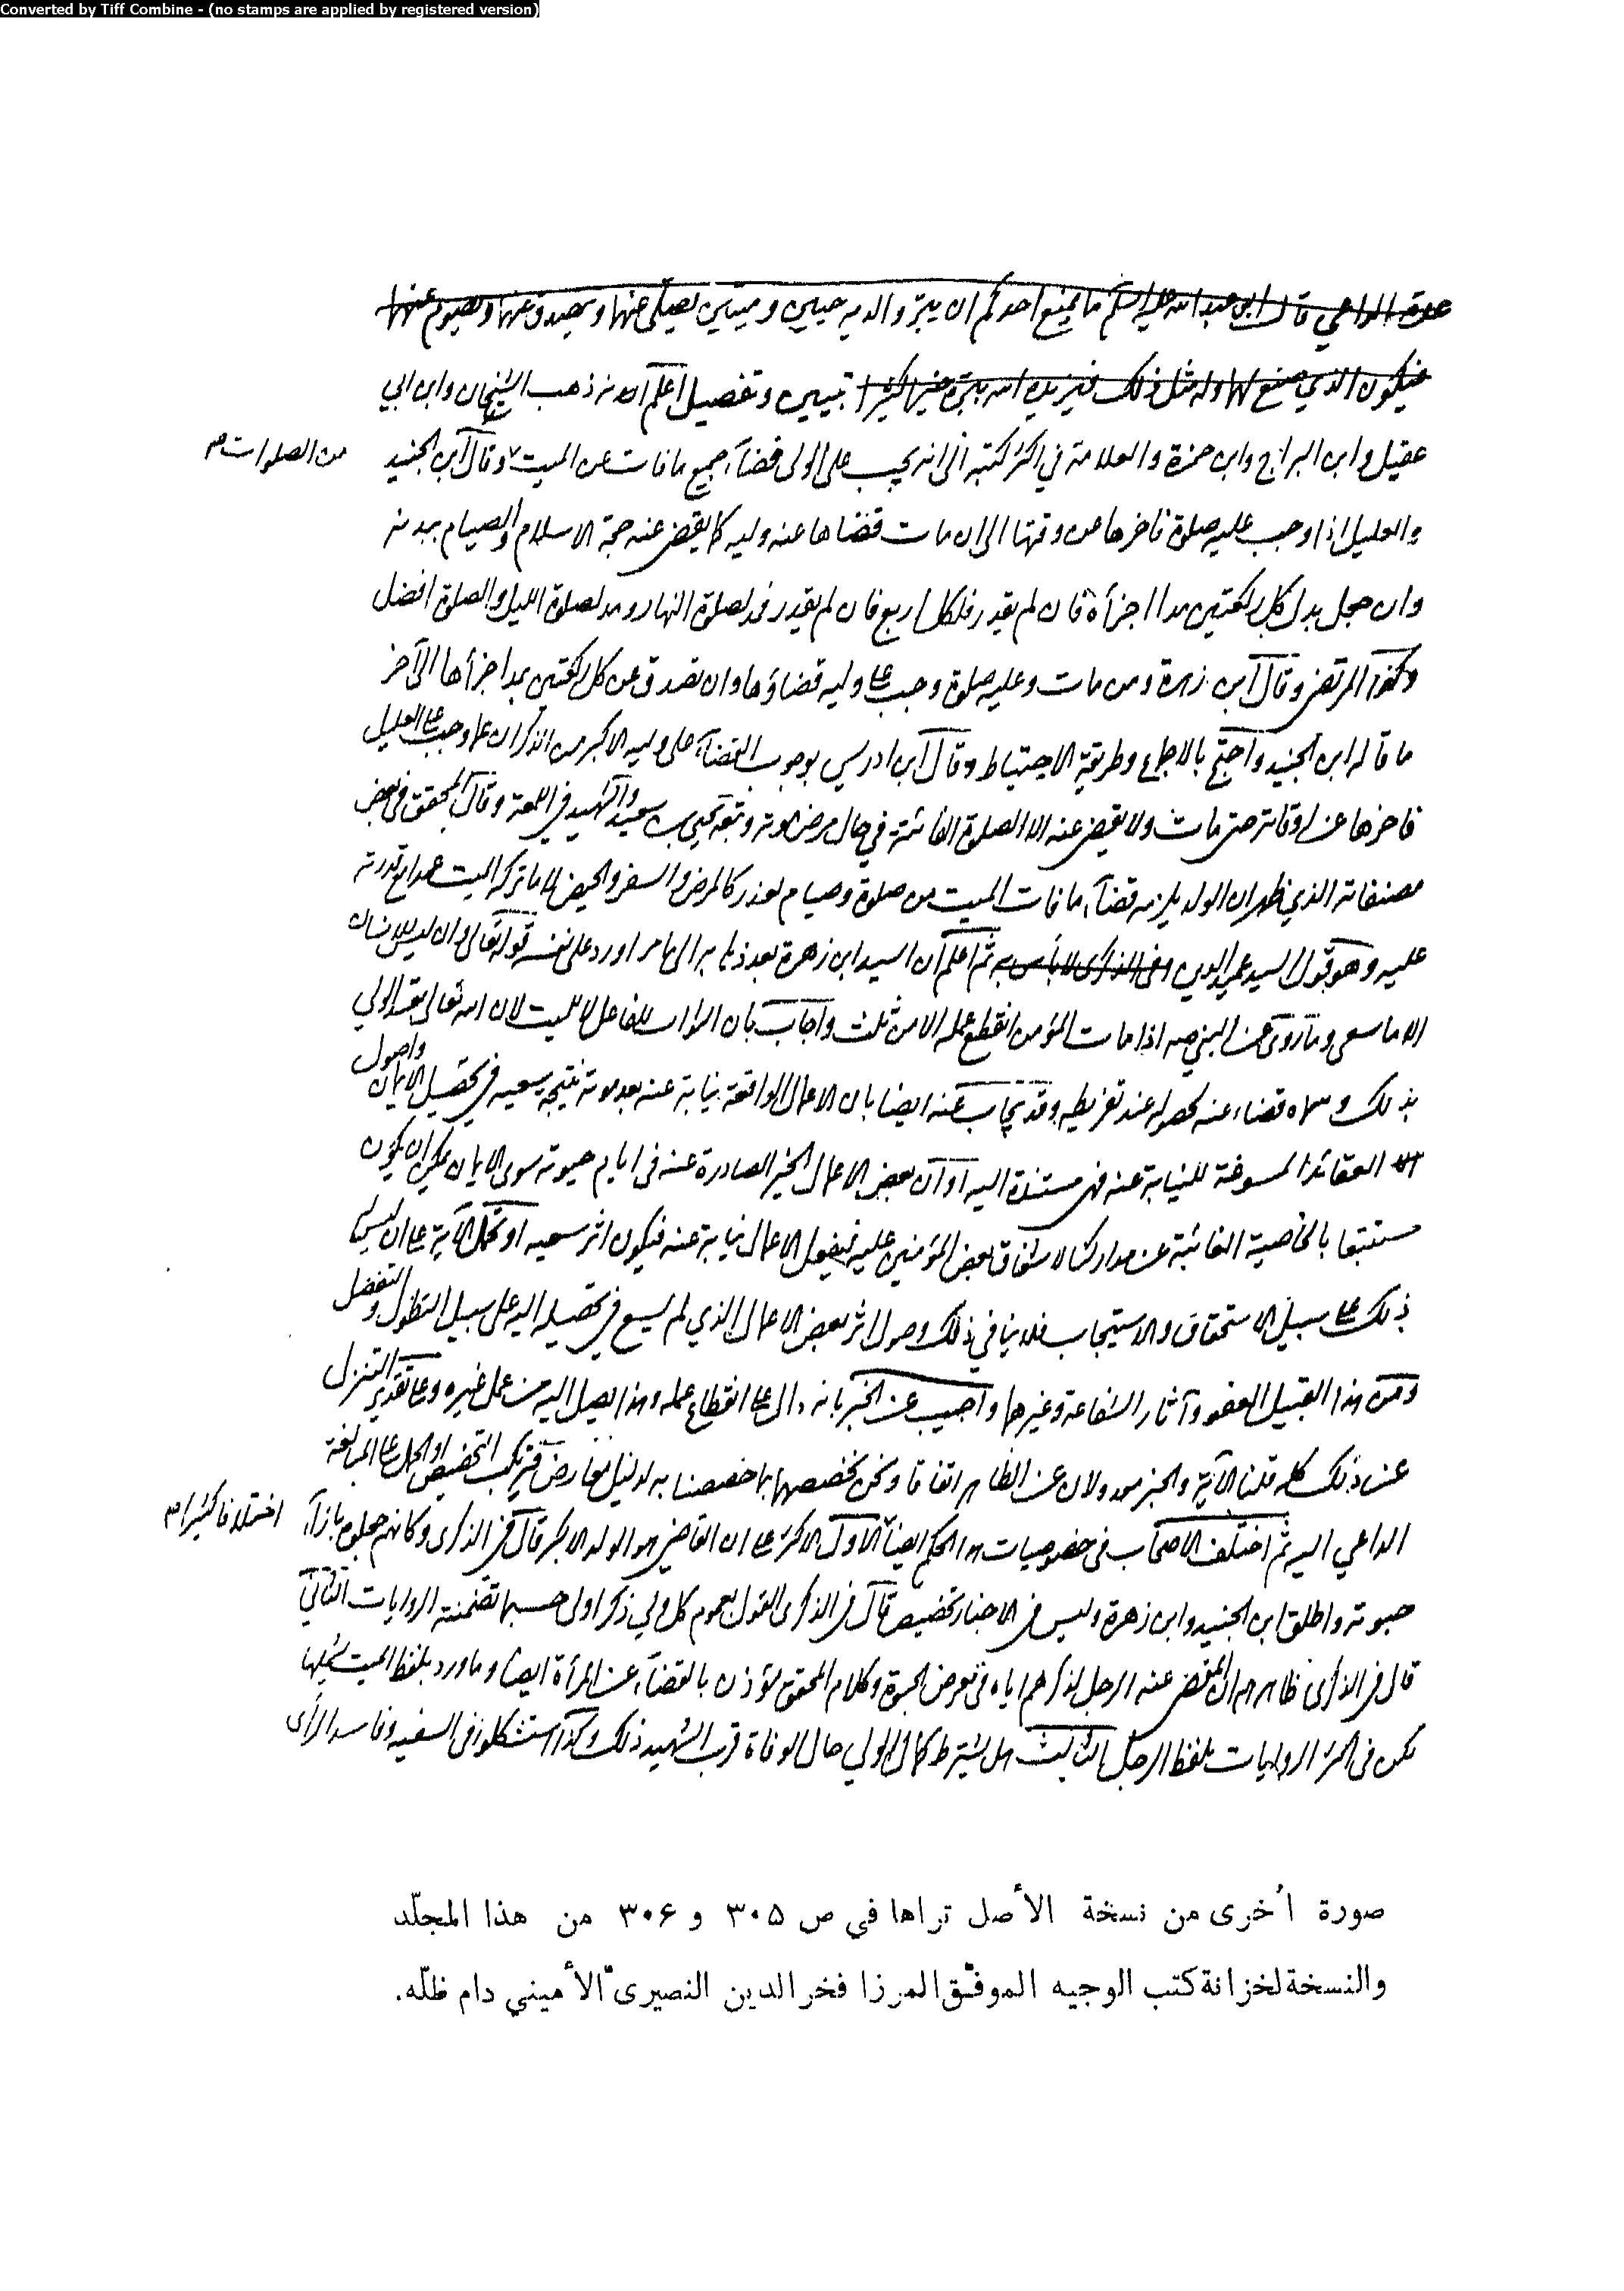 Converted by Tiff Combine - (no stamps are applied by registered version)
عدة الداعي قال ابو عبد الله عليه السلم ما يمنع احدكم ان يبر والديه حيين وميتين يصلى عنهما ويتصدق عنهما ويصوم عنهما
فيكون الذي صنع لهما وله مثل ذلك فيزيده الله ببره خيرا كثيرا تبيين وتفصيل اعلم انه ذهب الشيخان وابن ابي
عقيل وابن البراج وابن حمزة والعلامة في اكثر كتبه الى انه يجب على الولى قضاء جميع ما فات عن الميت وقال ابن الجنيد
من الصلوات
والعليل اذا وجب عليه صلوة فاخرها عن وقتها الى ان مات قضاها عنه وليه كما يقضى عنه حجة الاسلام والصيام ببدنه
وان جعل بدل كل ركعتين مدا اجزأه فان لم يقدر فلكل اربع فان لم يقدر فمد لصلوة النهار ومد لصلوة الليل والصلوة افضل
وكذا المرتضى وقال ابن زهرة ومن مات وعليه صلوة وجب على وليه قضاؤها وان تصدق عن كل ركعتين بمد اجزأ الى آخر
ما قاله ابن الجنيد واحتج بالاجماع وطريقة الاحتياط وقال ابن ادريس بوجوب القضاء على وليه الاكبر من الذكران ما وجب على العليل
فاخرها عن اوقاته حتى مات ولا يقضى عنه الا الصلوة الفائتة في حال مرض موته وتبعه يحيى بن سعيد والشهيد في اللمعة وقال المحقق في بعض
مصنفاته الذي ظهر ان الولد يلزمه قضاء ما فات الميت من صلوة وصيام لعذر كالمرض والسفر والحيض لا ما تركه الميت عمدا مع قدرته
عليه وهو قول السيد عميد الدين وفى الذكرى لا بأس به ثم اعلم ان السيد ابن زهرة بعد ذهابه الى ما مر اورد على نفسه قوله تعالى وان ليس للانسان
الا ما سعى وما روى عن النبي ص اذا مات المؤمن انقطع عمله الا من ثلث واجاب بان الثواب للفاعل لا للميت لان الله تعالى تعبد الولي
بذلك وسماه قضاء عنه لحصوله عند تفريطه وقد يجاب عنه ايضا بان الاعمال الواقعة نيابة عنه بعد موته نتيجة سعيه في تحصيل الايمان
واصول
العقائد المسوغة للنيابة عنه فهى مستندة اليه او ان بعض الاعمال الخير الصادرة عنه فى ايام حيوته سوى الايمان يمكن ان يكون
مستتبعا بالخاصية الغائبة عن مداركنا لاشفاق بعض المؤمنين عليه ليفعل الاعمال نيابة عنه فيكون اثر سعيه او تحمل الآية على ان ليس له
ذلك على سبيل الاستحقاق والاستيجاب فلا ينافي ذلك وصول اثر بعض الاعمال الذي لم يسع في تحصيله اليه على سبيل التطول والتفضل
ومن هذا القبيل العفو وآثار الشفاعة وغيرها واجيب عن الخبر بانه دال على انقطاع عمله وهذا يصل اليه من عمل غيره وعلى تقدير التنزل
عن ذلك كله قلنا الآية والخبر معدولان عن الظاهر اتفاقا ونحن نخصصهما بما خصصنا به لدليل معارض فنرتكب التخصيص او الحمل على المبالغة
الداعي اليه ثم اختلف الاصحاب فى خصوصيات هذا الحكم ايضا الاول الاكثر على ان القاضي هو الولد الاكبر قال في الذكرى وكانهم جعلوه بازاء
اختلافا كثيرا
حبوته واطلق ابن الجنيد وابن زهرة وليس في الاخبار تخصيص قال في الذكرى القول بعموم كل ولي ذكر اولى حسبما تضمنته الروايات الثاني
قال في الذكرى ظاهرهم ان المقضى عنه الرجل لذكرهم اياه فى معرض الحبوة وكلام المحقق يؤذن بالقضاء عن المرأة ايضا وما ورد بلفظ الميت يشملها
لكن فى اكثر الروايات بلفظ الرجل الثالث هل يشترط كمال الولي حال الوفاة قرب الشهيد ذلك وكذا استشكلوا فى السفيه وفاسد الرأى
صورة اُخرى من نسخة الأصل تراها في ص ۳۰۵ و ۳۰۶ من هذا المجلّد
والنسخة لخزانة كتب الوجيه الموفّق المرزا فخر الدين النصيرى الأميني دام ظلّه.